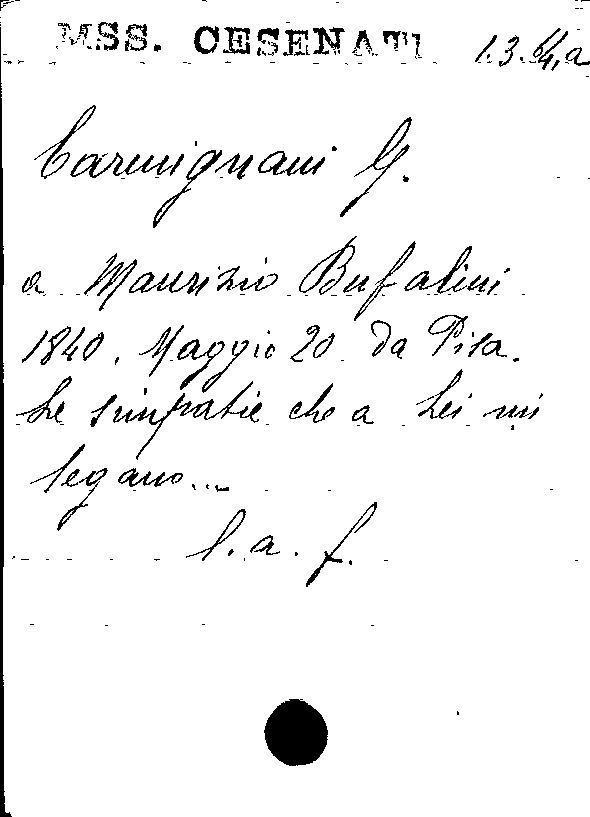 MSS. CESENATI 1.3.64,a
Carmignani G.
a Maurizio Bufalini
1840. Maggio 20 da Pisa.
Le simpatie che a Lei mi
legano...
l. a. f.